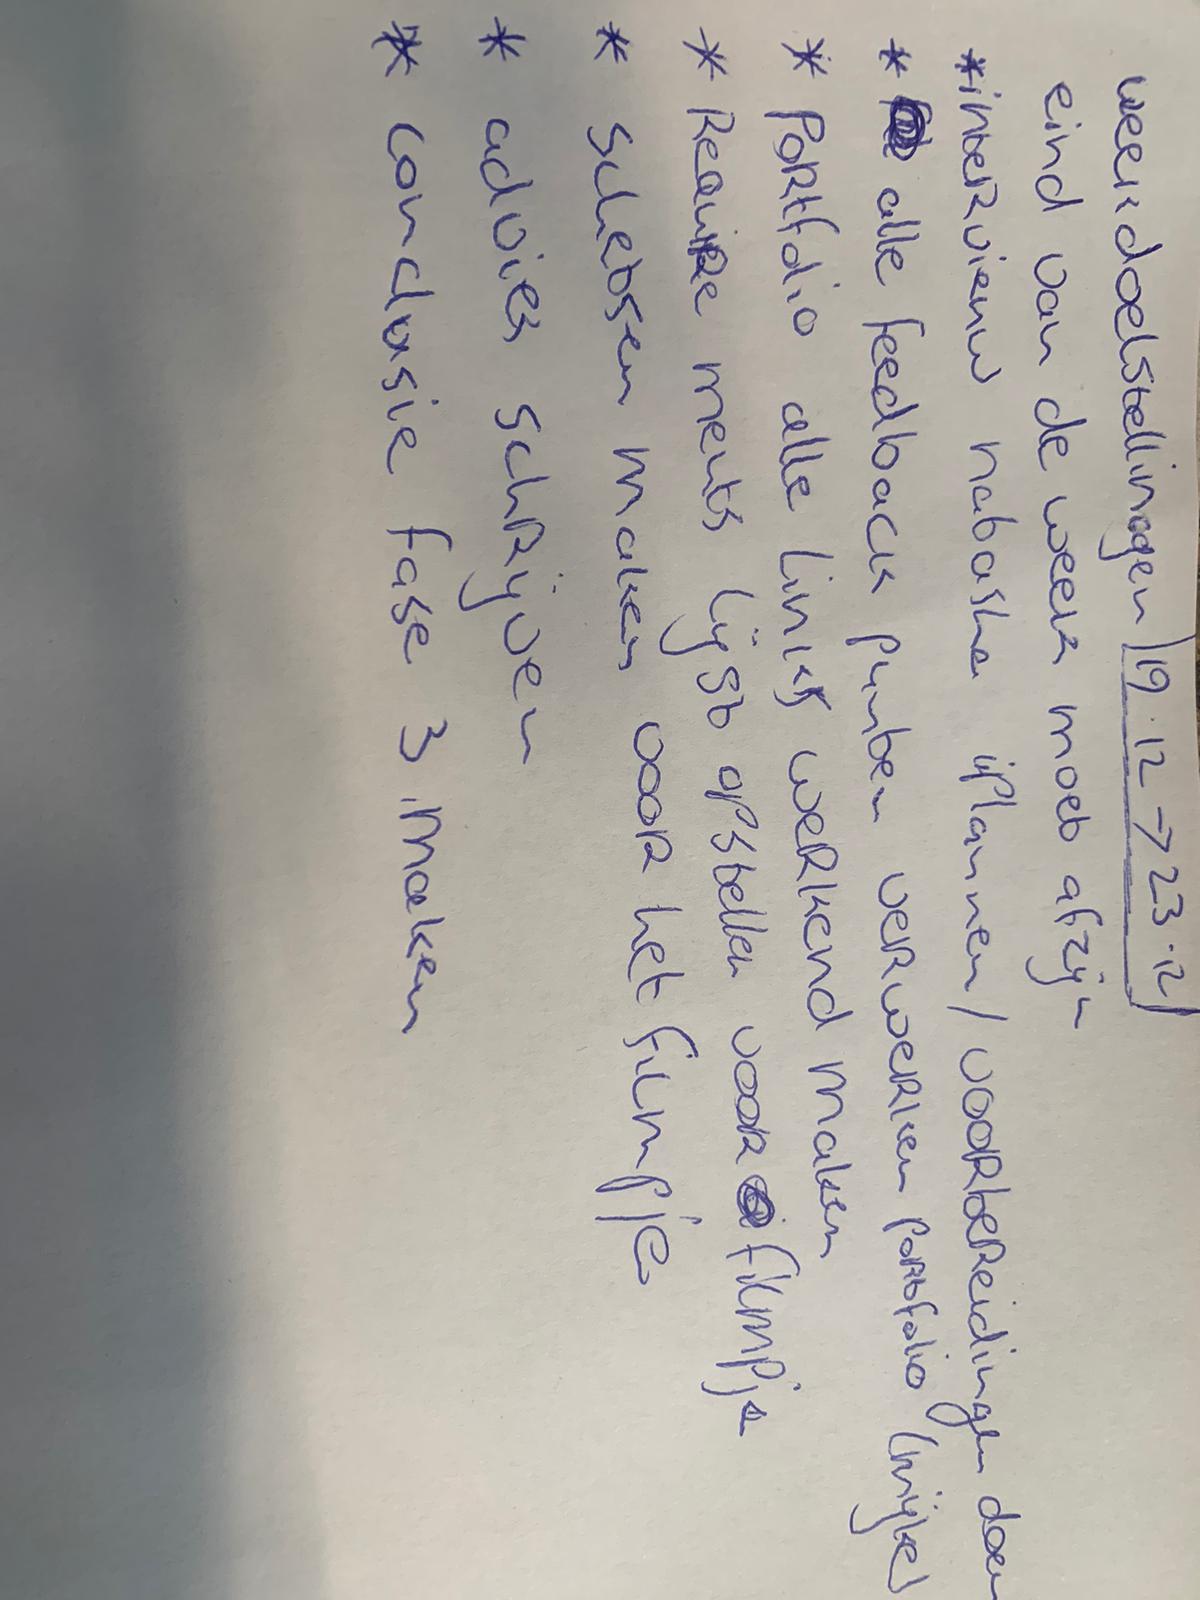 weekdoelstellingen 19.12 → 23.12
eind van de week moet af zijn
* intervienw natasha iplannen / voorbereidingen doen
* alle feedback punten verwerken portfolio (mijke)
* Portfolio alle links werkend maken
* Requirements lijst opstellen voor filmpje
* schetsen maken voor het filmpje
* advies schrijven
* conclusie fase 3 maken